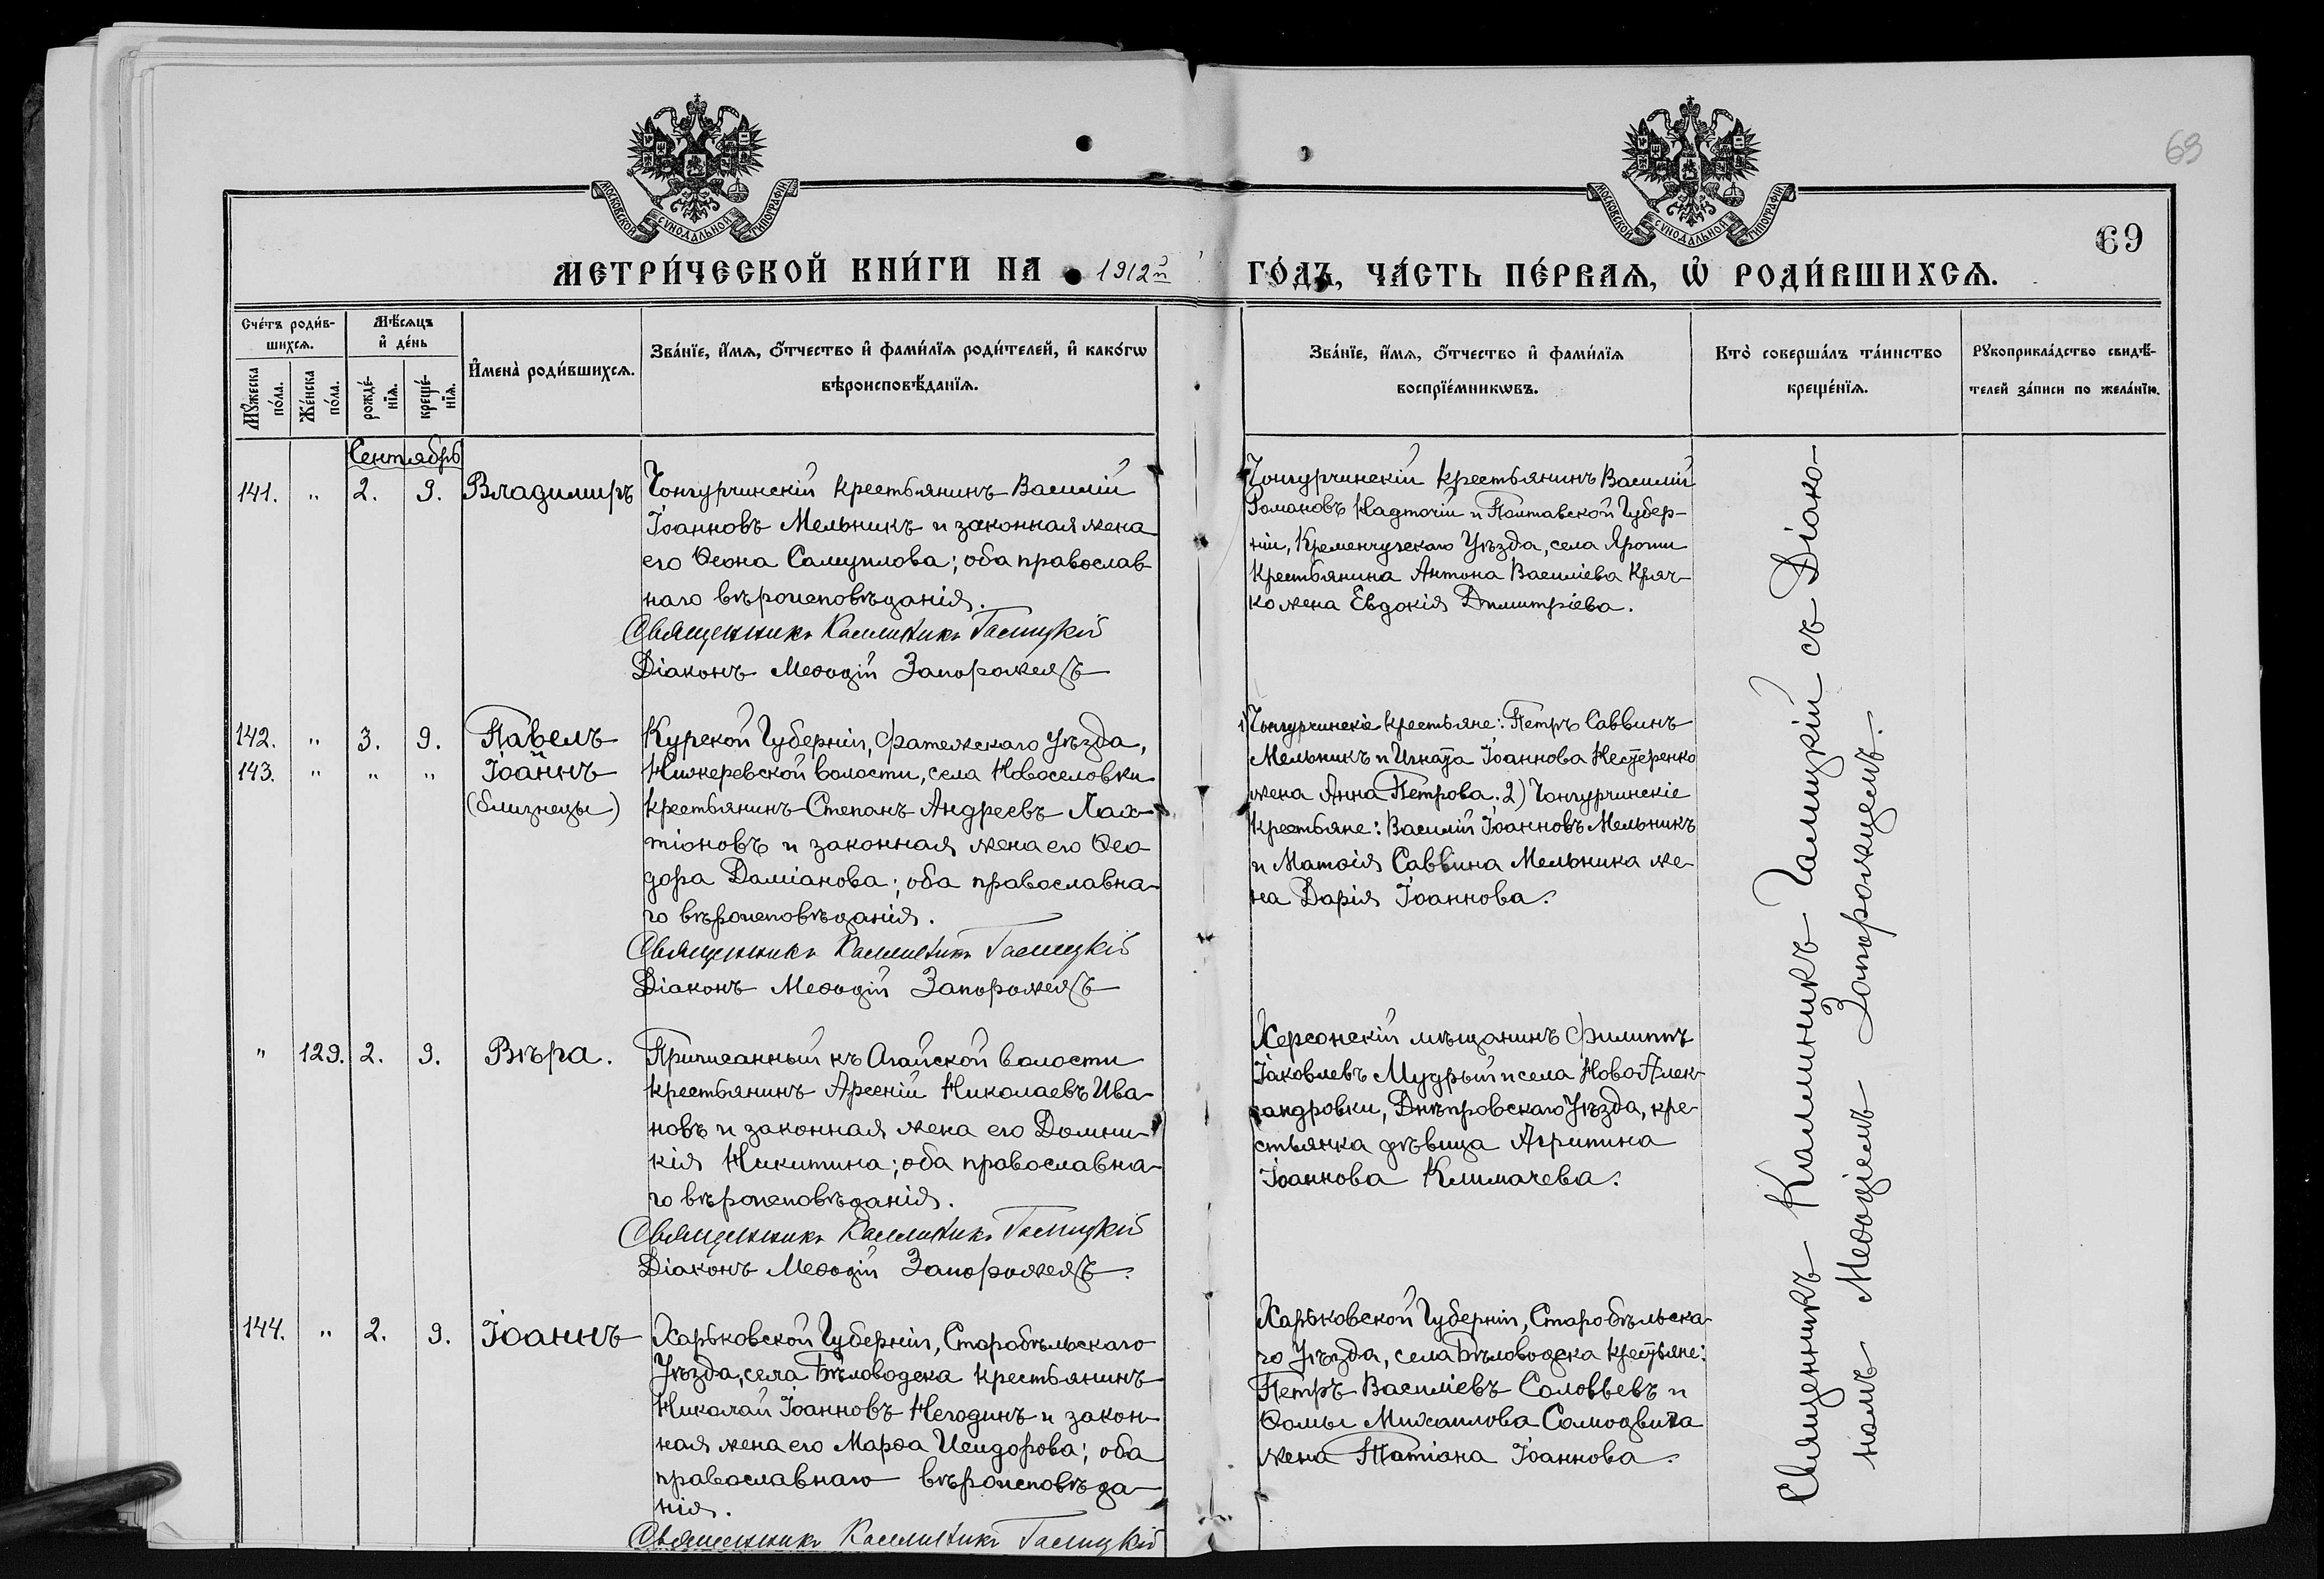 МОСКОВСКОЙ СѴНОДАЛЬНОЙ ТИПОГРАФІИ
МОСКОВСКОЙ СѴНОДАЛЬНОЙ ТИПОГРАФІИ
69
69
МЕТРИ́ЧЕСКОЙ КНИ́ГИ НА 1912й ГО́ДЪ, ЧА́СТЬ ПЕ́РВАѦ, Ѡ҆ РОДИ́ВШИХСѦ.
Сче́тъ роди́в-
шихсѧ.
Мꙋ́жеска по́ла.
Же́нска по́ла.
Мѣ́сѧцъ
и҆ де́нь
рожде́-
нїѧ.
креще́-
нїѧ.
И҆мена̀ роди́вшихсѧ.
Зва́нїе, и҆́мѧ, ѻ҆́тчество и҆ фами́лїѧ роди́телей, и҆ како́гѡ
вѣроисповѣ́данїѧ.
Зва́нїе, и҆́мѧ, ѻ҆́тчество и҆ фами́лїѧ
воспрїе́мникѡвъ.
Кто̀ соверша́лъ та́инство
креще́нїѧ.
Рꙋкоприкла́дство свидѣ́-
телей за́писи по жела́нїю.
Сентябрь
141. " 2. 9. Владимиръ
Чонгурчинскій крестьянинъ Василій
Іоанновъ Мельникъ и законная жена
его Ѳеона Самуилова; оба православ-
наго вѣроисповѣданія.
Священникъ Каллиникъ Галицкій
Діаконъ Меѳодій Запорожецъ
Чонгурчинскій крестьянинъ Василій
Романовъ Надточій и Полтавской Губер-
ніи, Кременчугскаго Уѣзда, села Ярошы
крестьянина Антона Василіева Кряч-
ко жена Евдокія Димитріева.
142. " 3. 9. Павелъ
143. " " " Іоаннъ
(близнецы)
Курской Губерніи, Фатежскаго Уѣзда,
Нижеревской волости, села Новоселовки
крестьянинъ Степанъ Андреевъ Лах-
тіоновъ и законная жена его Ѳео-
дора Даміанова; оба православна-
го вѣроисповѣданія.
Священникъ Каллиникъ Галицкій
Діаконъ Меѳодій Запорожецъ
1) Чонгурчинскіе крестьяне: Петръ Саввинъ
Мельникъ и Игнатія Іоаннова Нестеренко
жена Анна Петрова. 2) Чонгурчинскіе
крестьяне: Василій Іоанновъ Мельникъ
и Матѳія Саввина Мельника же-
на Дарія Іоаннова.
" 129. 2. 9. Вѣра.
Приписанный къ Агайской волости
крестьянинъ Арсеній Николаевъ Ива-
новъ и законная жена его Домни-
кія Никитина; оба православна-
го вѣроисповѣданія.
Священникъ Каллиникъ Галицкій
Діаконъ Меѳодій Запорожецъ.
Херсонскій мѣщанинъ Филиппъ
Іаковлевъ Мудрый и села Ново-Алек-
сандровки, Днѣпровскаго Уѣзда, кре-
стьянка дѣвица Агрипина
Іоаннова Климачева.
144. " 2. 9. Іоаннъ
Харьковской Губерніи, Старобѣльскаго
Уѣзда, села Бѣловодска крестьянинъ
Николай Іоанновъ Негодинъ и закон-
ная жена его Марѳа Исидорова; оба
православнаго вѣроисповѣда-
нія.
Священникъ Каллиникъ Галицкій
Харьковской Губерніи, Старобѣльска-
го Уѣзда, села Бѣловодска крестьяне:
Петръ Василіевъ Соловьевъ и
Ѳомы Михаилова Самодвита
жена Татіана Іоаннова.
Священникъ Каллиникъ Галицкій съ Діако-
номъ Меѳодіемъ Запорожцемъ.